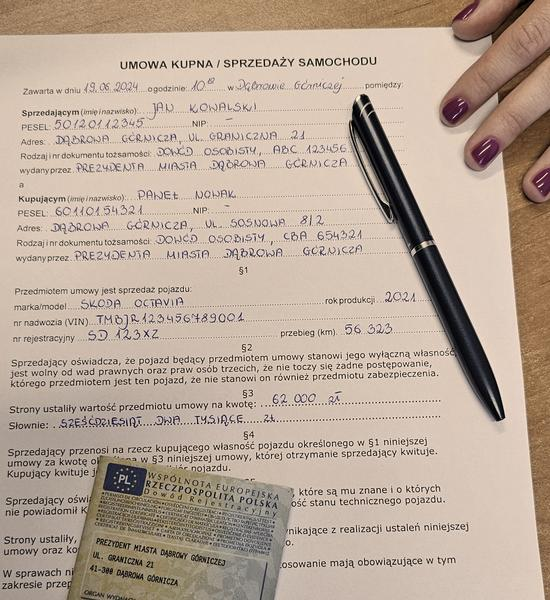 UMOWA KUPNA / SPRZEDAŻY SAMOCHODU
Zawarta w dniu 19.06.2024 o godzinie: 10⁰⁰ w Dąbrowie Górniczej pomiędzy:
Sprzedającym (imię i nazwisko): JAN KOWALSKI
PESEL: 50120112345 NIP: –
Adres: DĄBROWA GÓRNICZA, UL. GRANICZNA 21
Rodzaj i nr dokumentu tożsamości: DOWÓD OSOBISTY, ABC 123456
wydany przez PREZYDENTA MIASTA DĄBROWA GÓRNICZA
a
Kupującym (imię i nazwisko): PAWEŁ NOWAK
PESEL: 60110154321 NIP: –
Adres: DĄBROWA GÓRNICZA, UL. SOSNOWA 8/2
Rodzaj i nr dokumentu tożsamości: DOWÓD OSOBISTY, CBA 654321
wydany przez PREZYDENTA MIASTA DĄBROWA GÓRNICZA
§1
Przedmiotem umowy jest sprzedaż pojazdu:
marka/model SKODA OCTAVIA rok produkcji 2021
nr nadwozia (VIN) TMBJR123456789001
nr rejestracyjny SD 123XZ przebieg (km). 56 323
§2
Sprzedający oświadcza, że pojazd będący przedmiotem umowy stanowi jego wyłączną własność,
jest wolny od wad prawnych oraz praw osób trzecich, że nie toczy się żadne postępowanie,
którego przedmiotem jest ten pojazd, że nie stanowi on również przedmiotu zabezpieczenia.
§3
Strony ustaliły wartość przedmiotu umowy na kwotę: 62 000 zł
Słownie: SZEŚĆDZIESIĄT DWA TYSIĄCE ZŁ
§4
Sprzedający przenosi na rzecz kupującego własność pojazdu określonego w §1 niniejszej
umowy za kwotę w §3 niniejszej umowy, której otrzymanie sprzedający kwituje.
Kupujący kwituje pojazdu.
Sprzedający oświa które są mu znane i o których
nie powiadomił K ość stanu technicznego pojazdu.
Strony ustaliły, ynikające z realizacji ustaleń niniejszej
umowy oraz kos
W sprawach ni osowanie mają obowiązujące w tym
zakresie przep
PL
WSPÓLNOTA EUROPEJSKA
RZECZPOSPOLITA POLSKA
Dowód Rejestracyjny
PREZYDENT MIASTA DĄBROWY GÓRNICZEJ
UL. GRANICZNA 21
41-300 DĄBROWA GÓRNICZA
ORGAN WYDAJĄ